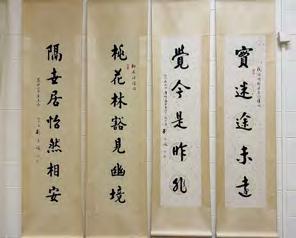 實迷途未遠
覺今是昨非
桃花林豁見幽境
隔世居怡然相安